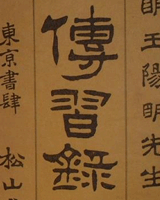 明王陽明先生
傳習錄
東京書肆 松山